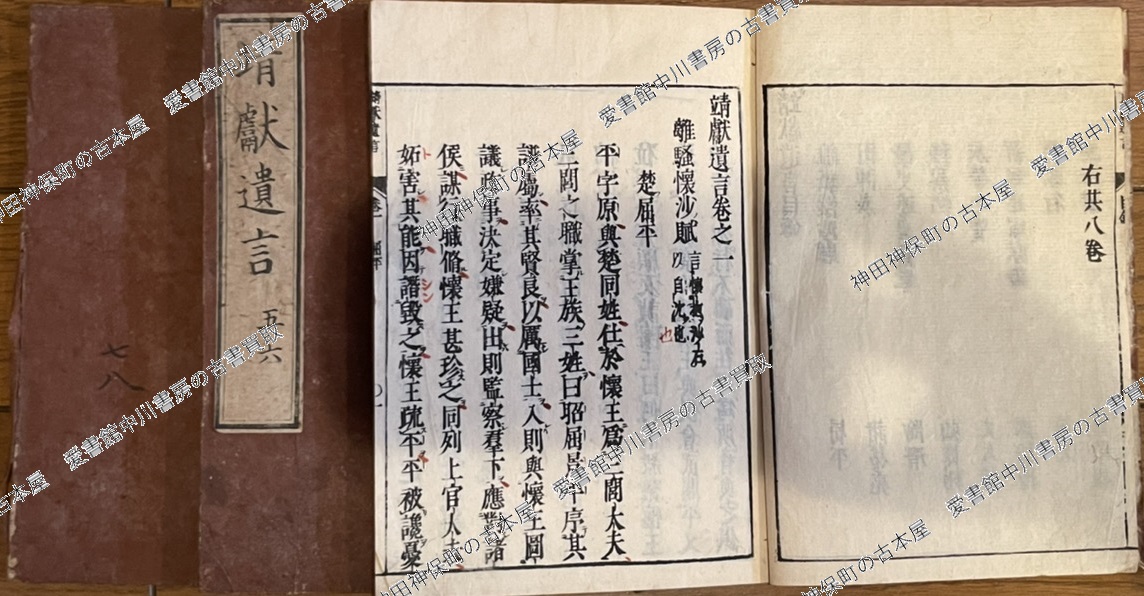 靖獻遺言
五六
七八
右共八卷
靖獻遺言卷之一
離騷懷沙賦 言懷抱沙石以自沈也
楚屈平
平字原與楚同姓仕於懷王爲三閭大夫
三閭之職掌王族三姓曰昭屈景平序其
譜屬率其賢良以厲國士入則與懷王圖
議政事決定嫌疑出則監察羣下應對諸
侯謀行職脩懷王甚珍之同列上官人夫
妬害其能因譖毀之懷王疏平平被讒憂
愛書館中川書房の古書買取
神田神保町の古本屋
愛書館中川書房の古書買取
神田神保町の古本屋
愛書館中川書房の古書買取
神田神保町の古本屋
愛書館中川書房の古書買取